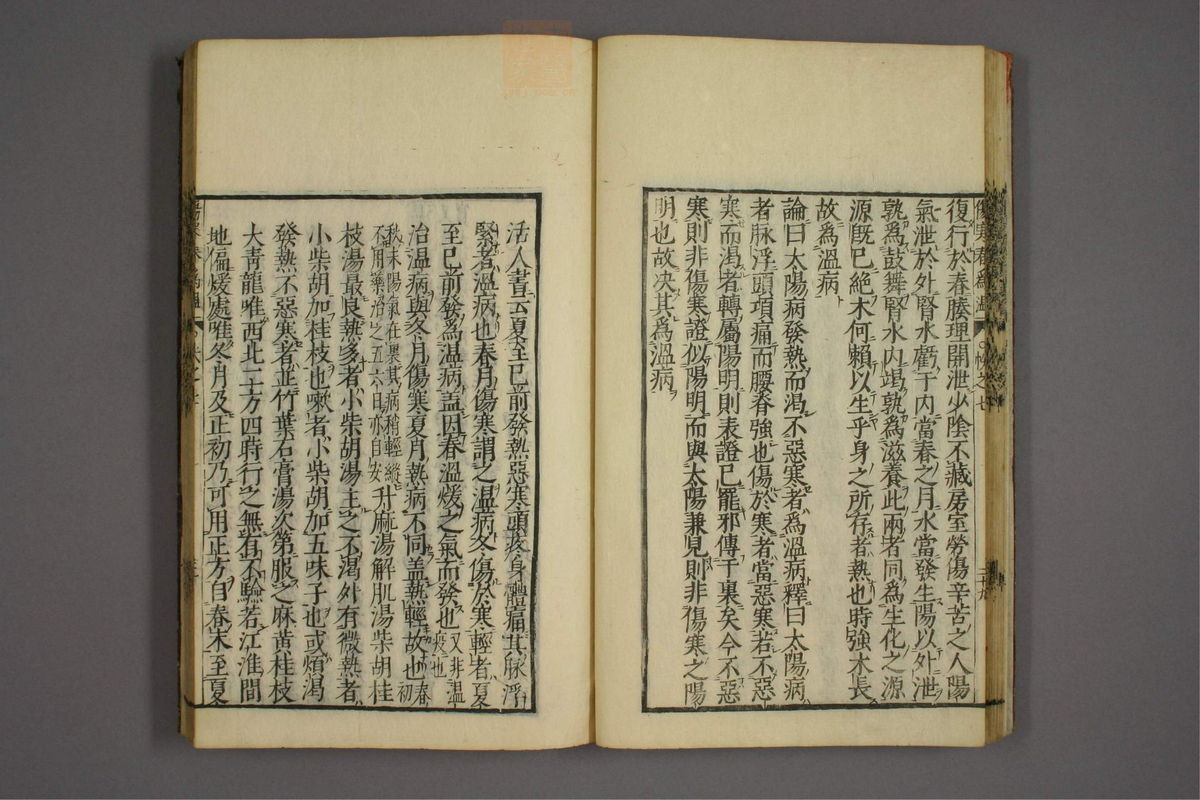 復行於春腠理開泄少陰不藏房室勞傷辛苦之人陽
氣泄於外腎水虧于内當春之月水當發生陽以外泄
孰爲鼓舞腎水内竭孰爲滋養此兩者同爲生化之源
源既已絶木何賴以生乎身之所存者熱也時強木長
故爲温病
論曰太陽病發熱而渴不惡寒者爲温病釋曰太陽病
者脉浮頭項痛而腰脊強也傷於寒者當惡寒若不惡
寒而渴者轉屬陽明則表證已罷邪傳于裏矣今不惡
寒則非傷寒證似陽明而與太陽兼見則非傷寒之陽
明也故决其爲温病
活人書云夏至已前發熱惡寒頭疼身體痛其脉浮
緊者温病也春月傷寒謂之温病冬傷於寒輕者夏
至已前發爲温病盖因春温煖之氣而發也又非温
疫也
治温病與冬月傷寒夏月熱病不同盖熱輕故也春
初
秋末陽氣在裏其病稍輕縱
不用藥治之五六日亦自安
升麻湯解肌湯柴胡桂
枝湯最良熱多者小柴胡湯主之不渴外有微熱者
小柴胡加桂枝也嗽者小柴胡加五味子也或煩渴
發熱不惡寒者並竹葉石膏湯次第服之麻黄桂枝
大青龍唯西北二方四時行之無有不驗若江淮間
地偏煖處唯冬月及正初乃可用正方自春末至夏